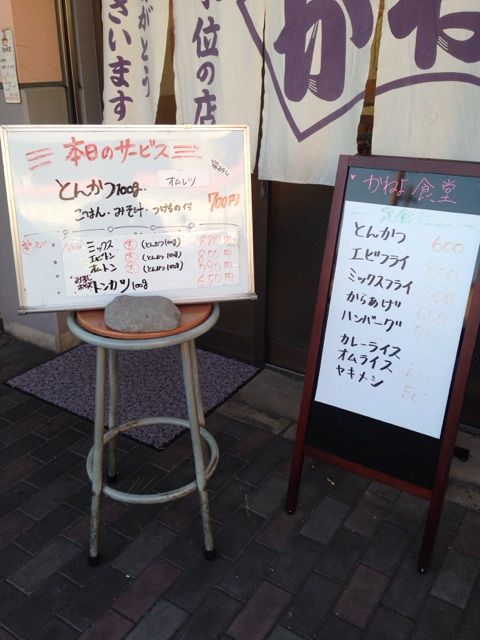 がとう
さいます
位の店
かね
本日のサービス
とんかつ100g
オムレツ
ごはん・みそ汁・つけもの付
700円
New
ミックス 大 (とんかつ100g) 880円
エビトン 大 (とんかつ100g) 850円
オムトン 大 (とんかつ100g)
トンカツ100g 650円
かねよ食堂
定食メニュー
とんかつ 600
エビフライ
ミックスフライ
からあげ 650
ハンバーグ
カレーライス
オムライス
ヤキメシ